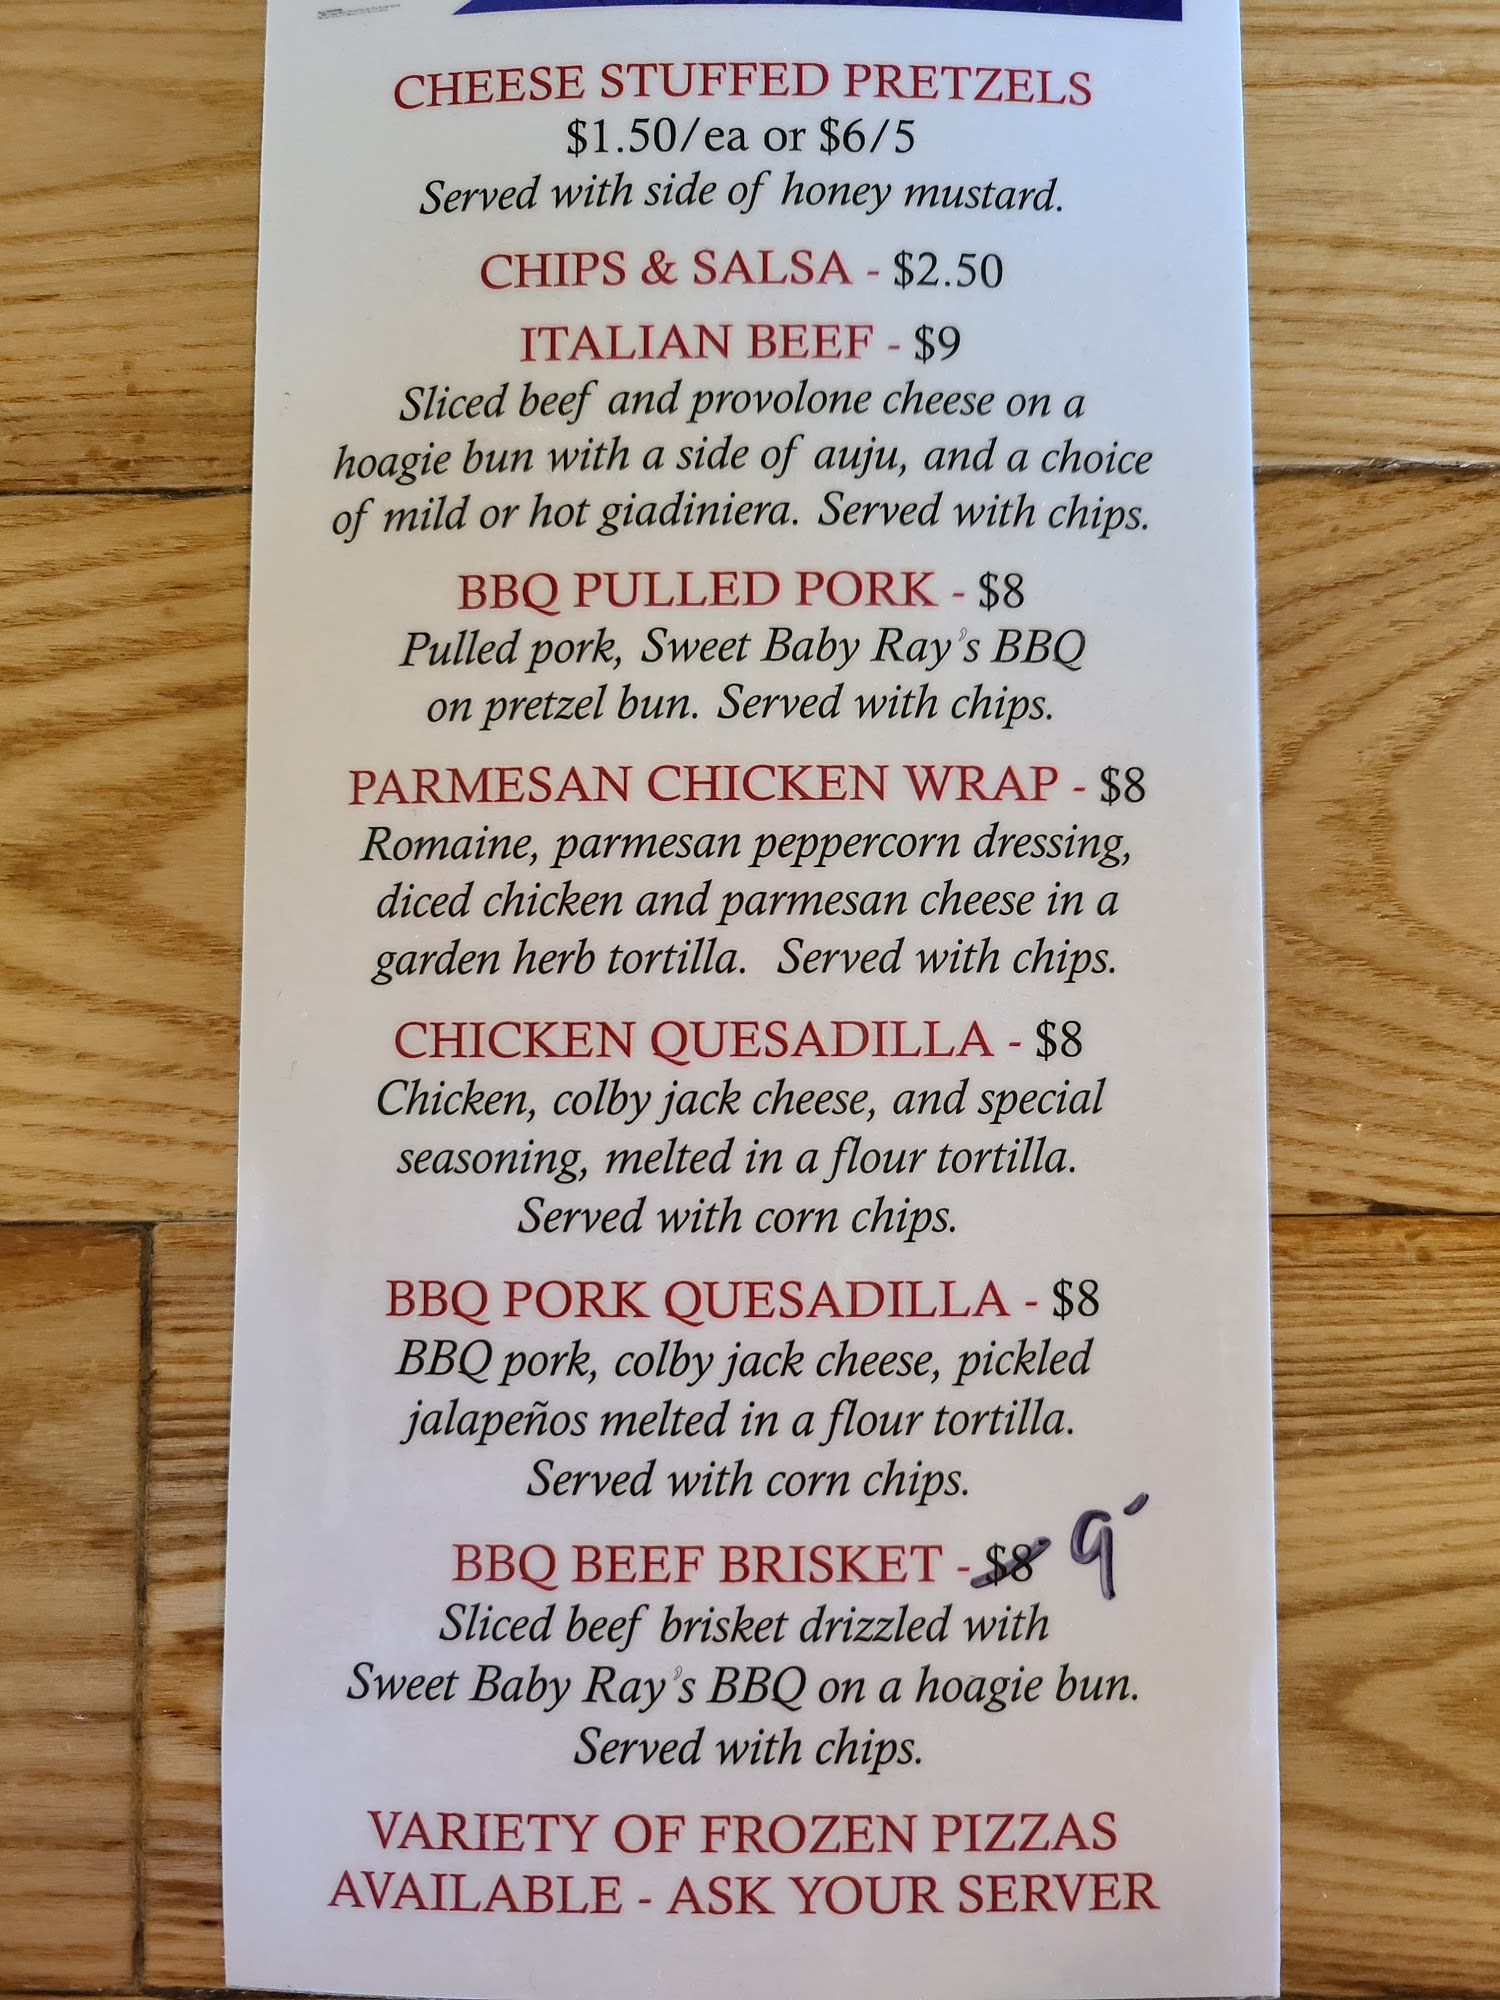 CHEESE STUFFED PRETZELS
$1.50/ea or $6/5
Served with side of honey mustard.
CHIPS & SALSA - $2.50
ITALIAN BEEF - $9
Sliced beef and provolone cheese on a
hoagie bun with a side of auju, and a choice
of mild or hot giadiniera. Served with chips.
BBQ PULLED PORK - $8
Pulled pork, Sweet Baby Ray's BBQ
on pretzel bun. Served with chips.
PARMESAN CHICKEN WRAP - $8
Romaine, parmesan peppercorn dressing,
diced chicken and parmesan cheese in a
garden herb tortilla. Served with chips.
CHICKEN QUESADILLA - $8
Chicken, colby jack cheese, and special
seasoning, melted in a flour tortilla.
Served with corn chips.
BBQ PORK QUESADILLA - $8
BBQ pork, colby jack cheese, pickled
jalapeños melted in a flour tortilla.
Served with corn chips.
BBQ BEEF BRISKET - $8 9
Sliced beef brisket drizzled with
Sweet Baby Ray's BBQ on a hoagie bun.
Served with chips.
VARIETY OF FROZEN PIZZAS
AVAILABLE - ASK YOUR SERVER